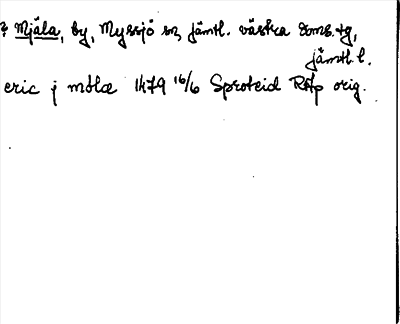 ? Mjåla, by, Myssjö sn, Jämtl. västra doms.tg,
Jämtl. l.
eric j møla 1479 16/6 Sproteid RAp orig.